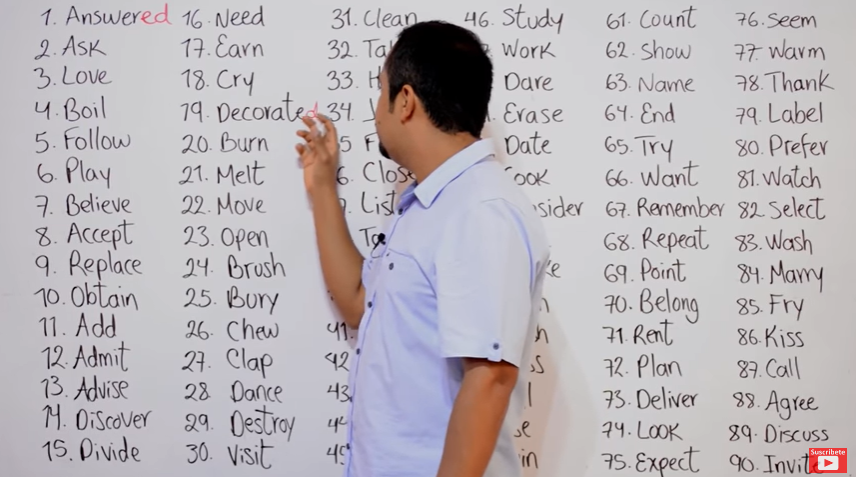 1. Answered
2. Ask
3. Love
4. Boil
5. Follow
6. Play
7. Believe
8. Accept
9. Replace
10. Obtain
11. Add
12. Admit
13. Advise
14. Discover
15. Divide
16. Need
17. Earn
18. Cry
19. Decorated
20. Burn
21. Melt
22. Move
23. Open
24. Brush
25. Bury
26. Chew
27. Clap
28. Dance
29. Destroy
30. Visit
31. Clean
32.
33.
34.
Close
41.
42
43
46. Study
Work
Dare
Erase
Date
61. Count
62. Show
63. Name
64. End
65. Try
66. Want
67. Remember
68. Repeat
69. Point
70. Belong
71. Rent
72. Plan
73. Deliver
74. Look
75. Expect
76. Seem
77. Warm
78. Thank
79. Label
80. Prefer
81. Watch
82. Select
83. Wash
84. Marry
85. Fry
86. Kiss
87. Call
88. Agree
89. Discuss
90. Invite
Suscríbete